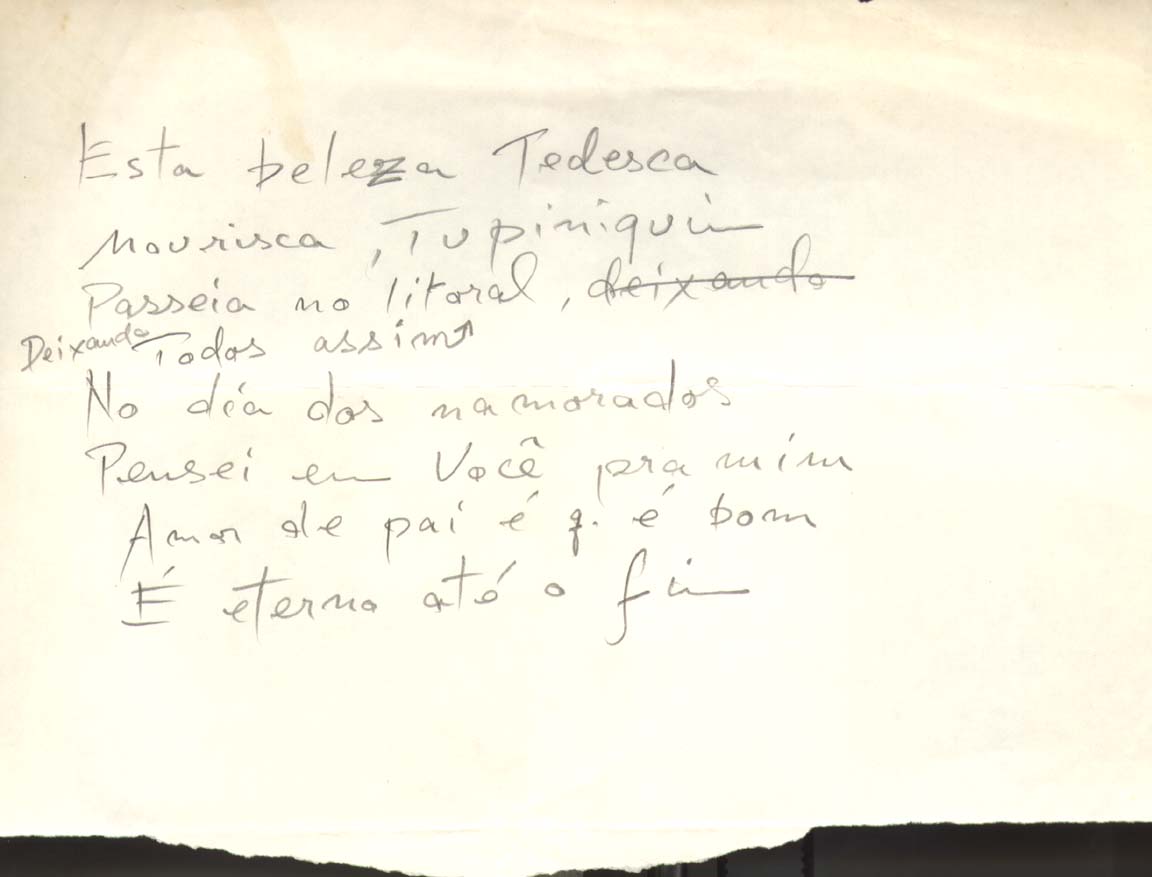 Esta beleza Tedesca
Mourisca, Tupiniquim
Passeia no litoral, ~~deixando~~
Deixando Todos assim
No dia dos namorados
Pensei em Você pra mim
Amor de pai é q. é bom
É eterno até o fim